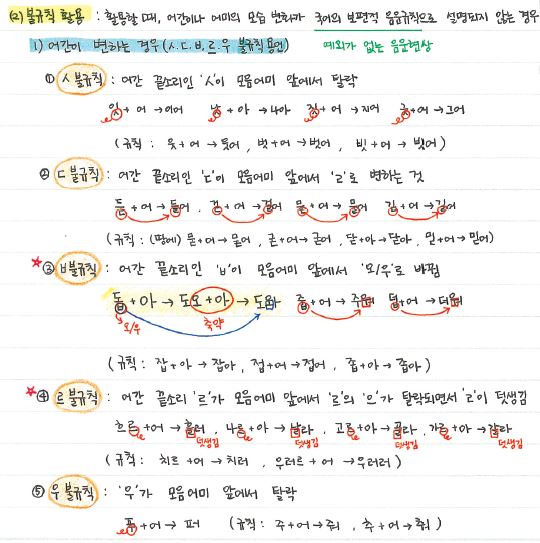 (2) 불규칙 활용 : 활용할 때, 어간이나 어미의 모습 변화가 국어의 보편적 음운규칙으로 설명되지 않는 경우
1) 어간이 변하는 경우 (ㅅ.ㄷ.ㅂ.르.우 불규칙 용언) 예외가 없는 음운현상
① ㅅ 불규칙 : 어간 끝소리인 'ㅅ'이 모음어미 앞에서 탈락
잇+어→이어 낫+아→나아 짓+어→지어 긋+어→그어
(규칙 : 웃+어→웃어, 벗+어→벗어, 빗+어→빗어)
② ㄷ 불규칙 : 어간 끝소리인 'ㄷ'이 모음어미 앞에서 'ㄹ'로 변하는 것
듣+어→들어, 걷+어→걸어 묻+어→물어 깁+어→길어
(규칙 : (땅에) 묻+어→묻어, 굳+어→굳어, 닫+아→닫아, 믿+어→믿어)
★ ③ ㅂ 불규칙 : 어간 끝소리인 'ㅂ'이 모음어미 앞에서 '오/우'로 바뀜
돕+아→도오+아→도와 줍+어→주워 덥+어→더워
오/우 축약
(규칙 : 잡+아→잡아, 접+어→접어, 좁+아→좁아)
★ ④ 르 불규칙 : 어간 끝소리 '르'가 모음어미 앞에서 '르'의 '으'가 탈락되면서 'ㄹ'이 덧생김
흐르+어→흘러, 나르+아→날라, 고르+아→골라, 가르+아→갈라
덧생김 덧생김 덧생김 덧생김
(규칙 : 치르+어→치러, 우러르+어→우러러)
⑤ 우 불규칙 : '우'가 모음어미 앞에서 탈락
푸+어→퍼 (규칙 : 주+어→줘, 추+어→춰)